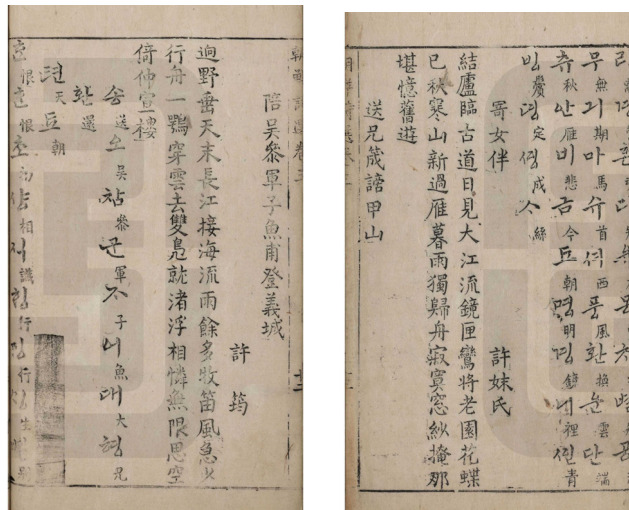 무無긔期마馬슈首셔西풍風환換운雲단端
츄秋안雁비悲금今됴朝명明경鏡니裡쳥青
빙鬢뎡定셩成ᄉ絲
寄女伴
許妹氏
結廬臨古道日見大江流鏡匣鸞將老園花蝶
已秋寒山新過雁暮雨獨歸舟寂寞窓紗掩那
堪憶舊遊
送兄筬謫甲山
陪吳參軍子魚甫登義城
許筠
逈野垂天末長江接海流雨餘多牧笛風急少
行舟一鶚穿雲去雙鳧就渚浮相憐無限思空
倚仲宣樓
송送오吳참參군軍ᄌ子어魚대大형兄
환還
텬天됴朝
恨恨初相識行行